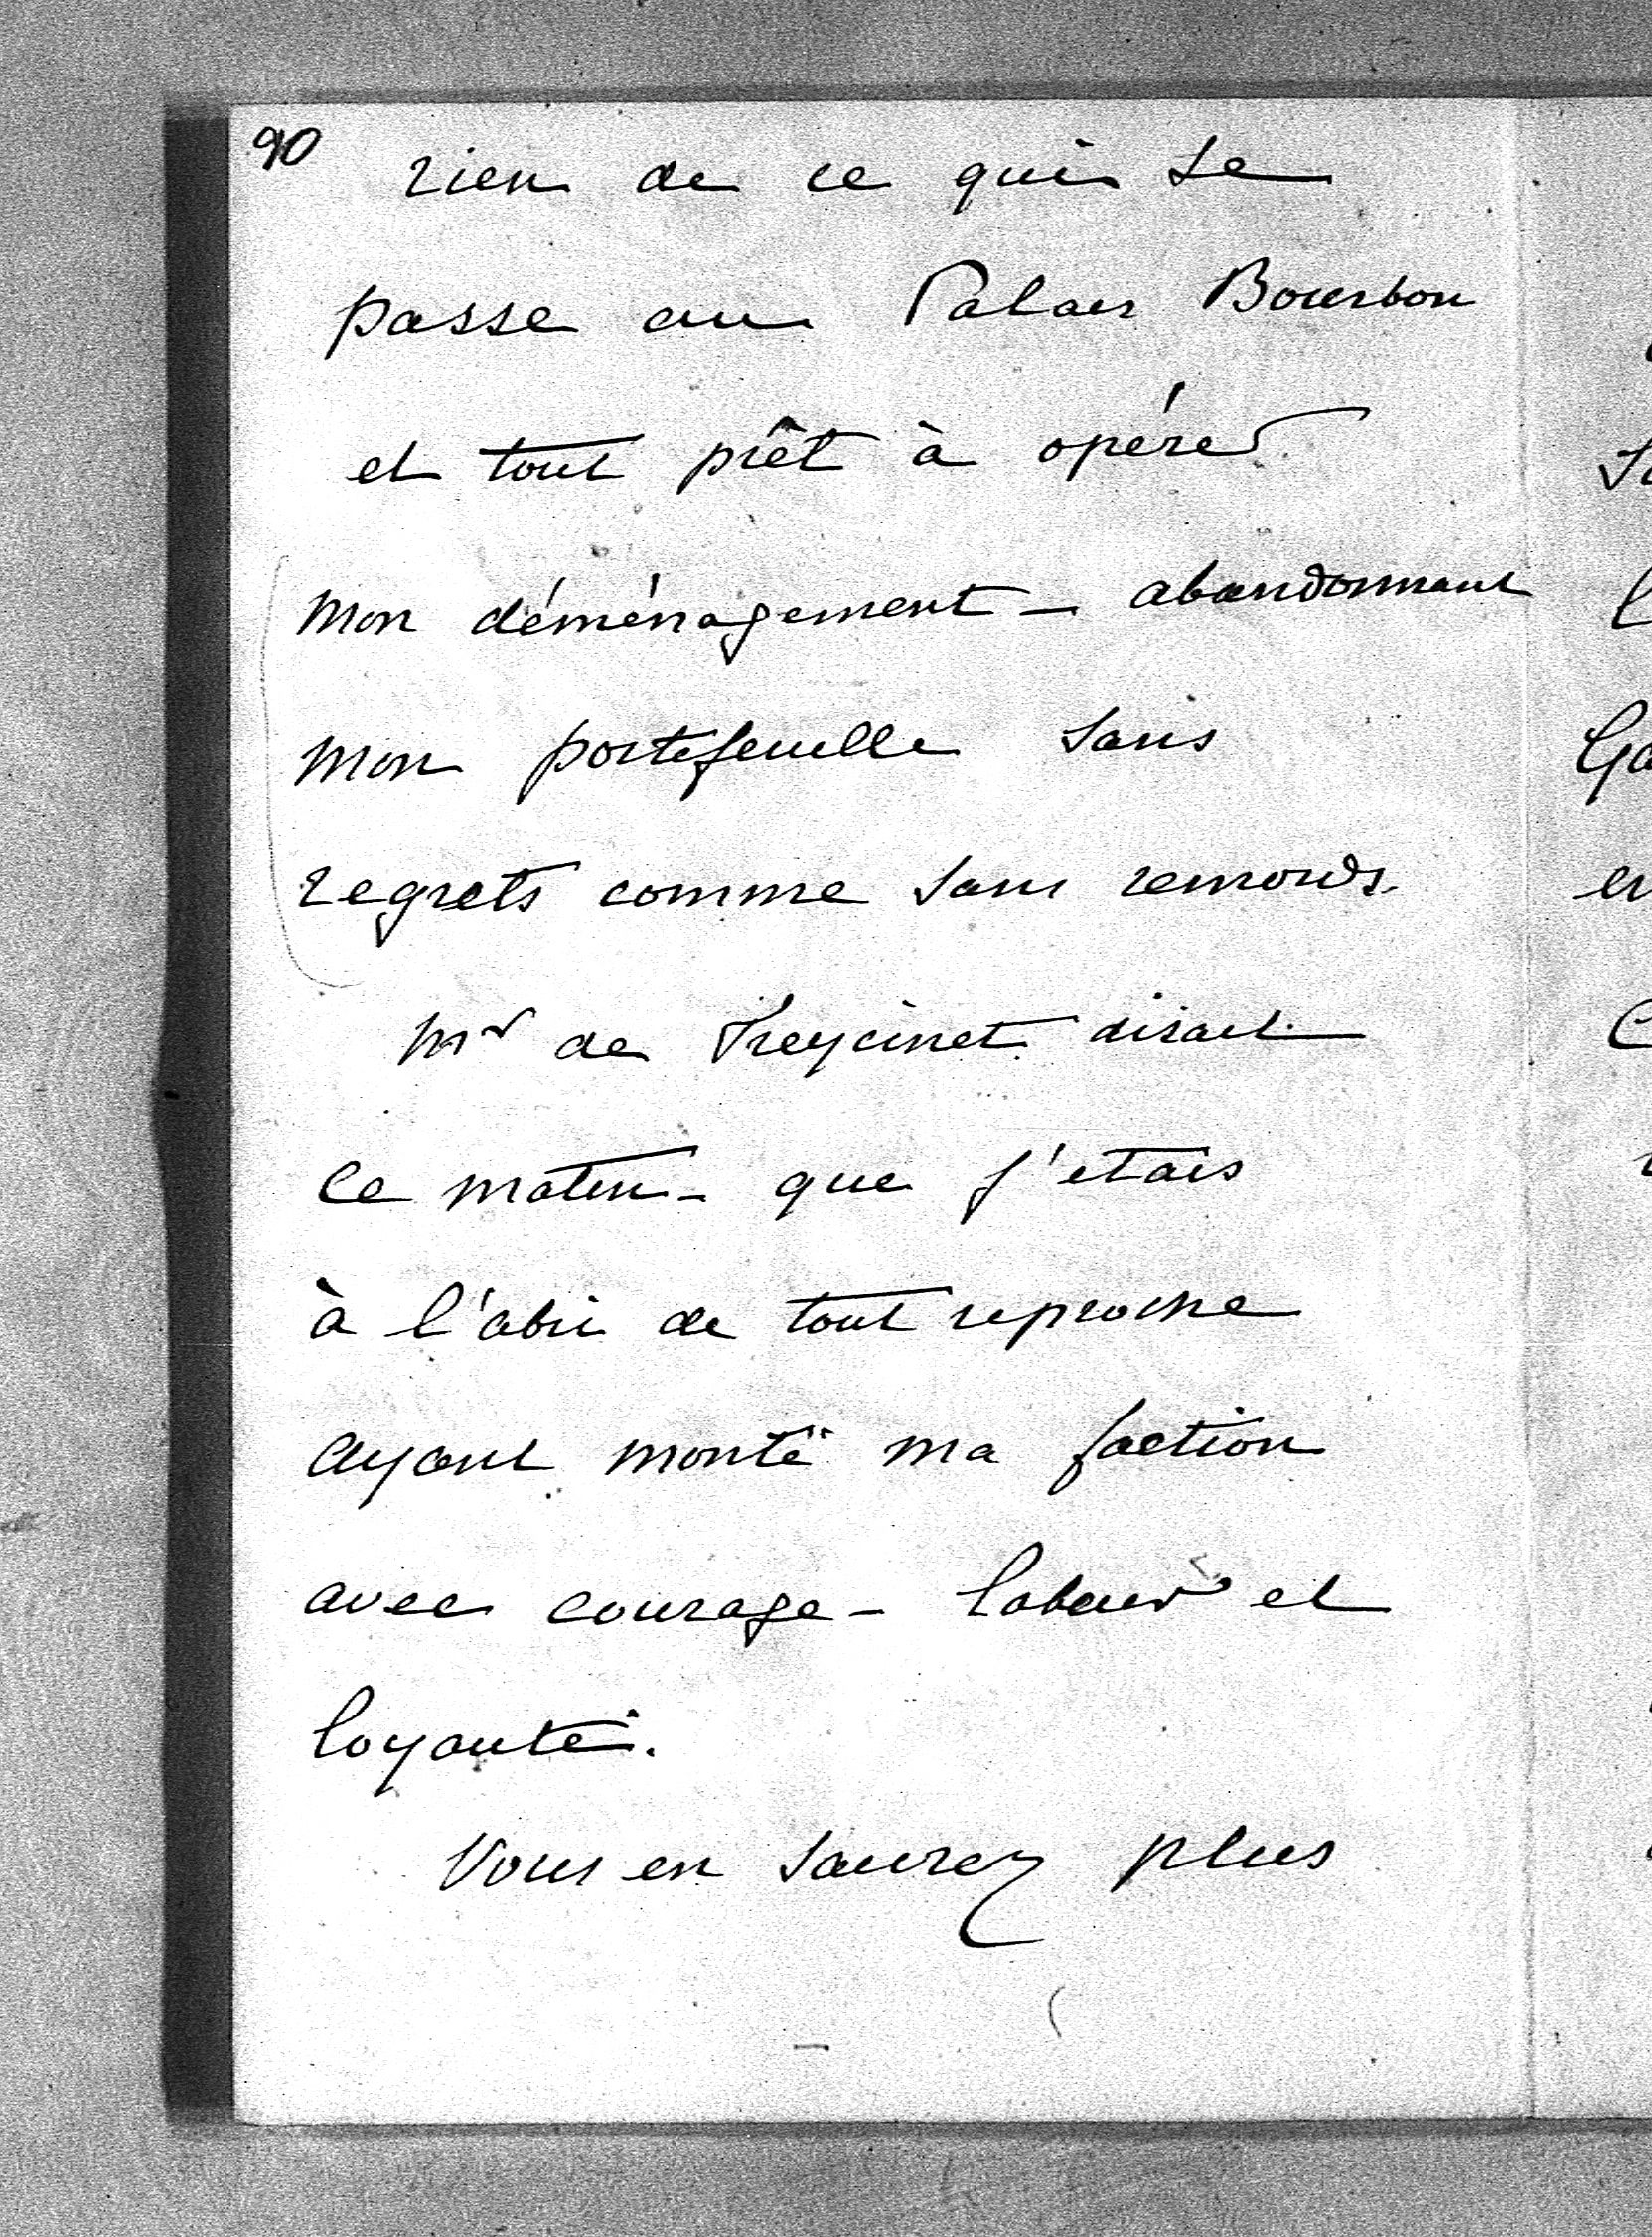 90
rien de ce qui se
passe au Palais Bourbon
et tout prêt à opérer
mon déménagement – abandonnant
mon portefeuille sans
regrets comme sans remords.
Mr de Freycinet disait
ce matin – que j'etais
à l'abri de tout reproche
ayant monté ma faction
avec courage – labeur et
loyauté.
Vous en saurez plus